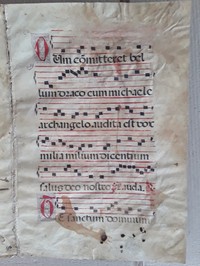 Dum comitteret bel
lum draco cum michaele
archangelo audita est vox
milia milium dicentium
salus deo nostro
sanctum dominum